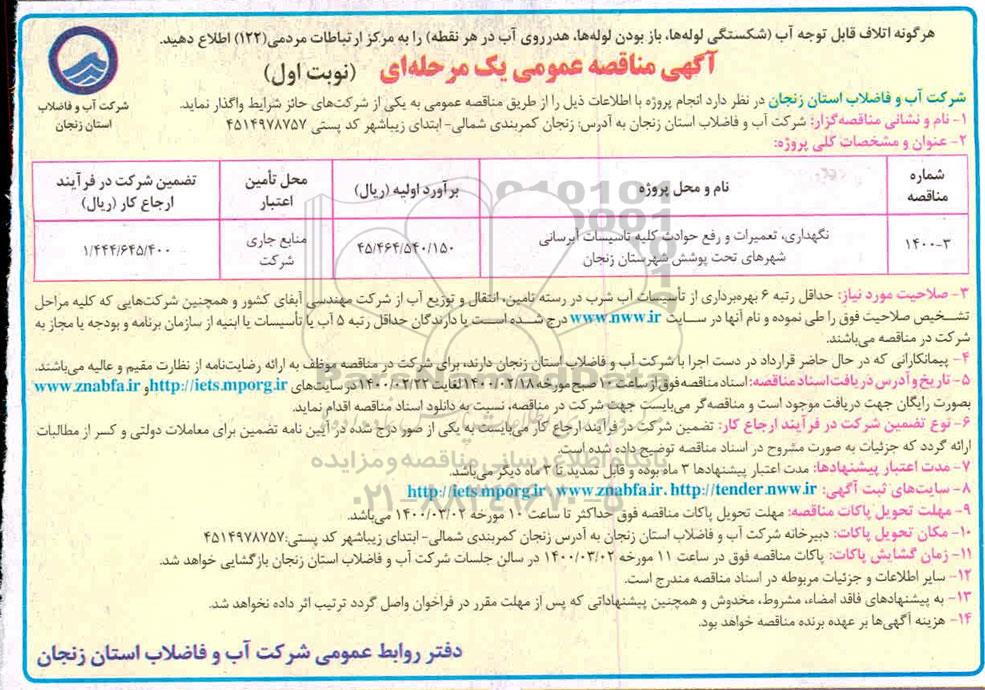 هرگونه اتلاف قابل توجه آب (شکستگی لوله‌ها، باز بودن لوله‌ها، هدرروی آب در هر نقطه) را به مرکز ارتباطات مردمی(۱۲۲) اطلاع دهید.
آگهی مناقصه عمومی یک مرحله‌ای (نوبت اول)
شرکت آب و فاضلاب
استان زنجان
شرکت آب و فاضلاب استان زنجان در نظر دارد انجام پروژه با اطلاعات ذیل را از طریق مناقصه عمومی به یکی از شرکت‌های حائز شرایط واگذار نماید.
۱- نام و نشانی مناقصه‌گزار: شرکت آب و فاضلاب استان زنجان به آدرس: زنجان کمربندی شمالی- ابتدای زیباشهر کد پستی ۴۵۱۴۹۷۸۷۵۷
۲- عنوان و مشخصات کلی پروژه:
شماره مناقصه
نام و محل پروژه
برآورد اولیه (ریال)
محل تأمین اعتبار
تضمین شرکت در فرآیند ارجاع کار (ریال)
۱۴۰۰-۳
نگهداری، تعمیرات و رفع حوادث کلیه تاسیسات آبرسانی
شهرهای تحت پوشش شهرستان زنجان
۴۵/۴۶۴/۵۴۰/۱۵۰
منابع جاری شرکت
۱/۴۴۴/۶۴۵/۴۰۰
۳- صلاحیت مورد نیاز: حداقل رتبه ۶ بهره‌برداری از تأسیسات آب شرب در رسته تامین، انتقال و توزیع آب از شرکت مهندسی آبفای کشور و همچنین شرکت‌هایی که کلیه مراحل
تشخیص صلاحیت فوق را طی نموده و نام آنها در سایت www.nww.ir درج شده است یا دارندگان حداقل رتبه ۵ آب یا تأسیسات یا ابنیه از سازمان برنامه و بودجه یا مجاز به
شرکت در مناقصه می‌باشند.
۴- پیمانکارانی که در حال حاضر قرارداد در دست اجرا با شرکت آب و فاضلاب استان زنجان دارند، برای شرکت در مناقصه موظف به ارائه رضایت‌نامه از نظارت مقیم و عالیه می‌باشند.
۵- تاریخ و آدرس دریافت اسناد مناقصه: اسناد مناقصه فوق از ساعت ۱۰ صبح مورخه ۱۴۰۰/۰۲/۱۸ لغایت ۱۴۰۰/۰۲/۲۲ در سایت‌های http://iets.mporg.ir و www.znabfa.ir
بصورت رایگان جهت دریافت موجود است و مناقصه‌گر می‌بایست جهت شرکت در مناقصه، نسبت به دانلود اسناد مناقصه اقدام نماید.
۶- نوع تضمین شرکت در فرآیند ارجاع کار: تضمین شرکت در فرآیند ارجاع کار می‌بایست به یکی از صور درج شده در آیین نامه تضمین برای معاملات دولتی و کسر از مطالبات
ارائه گردد که جزئیات به صورت مشروح در اسناد مناقصه توضیح داده شده است.
۷- مدت اعتبار پیشنهادها: مدت اعتبار پیشنهادها ۳ ماه بوده و قابل تمدید تا ۳ ماه دیگر می‌باشد.
۸- سایت‌های ثبت آگهی: http://iets.mporg.ir ، www.znabfa.ir، http://tender.nww.ir
۹- مهلت تحویل پاکات مناقصه: مهلت تحویل پاکات مناقصه فوق حداکثر تا ساعت ۱۰ مورخه ۱۴۰۰/۰۳/۰۲ می‌باشد.
۱۰- مکان تحویل پاکات: دبیرخانه شرکت آب و فاضلاب استان زنجان به آدرس زنجان کمربندی شمالی- ابتدای زیباشهر کد پستی: ۴۵۱۴۹۷۸۷۵۷
۱۱- زمان گشایش پاکات: پاکات مناقصه فوق در ساعت ۱۱ مورخه ۱۴۰۰/۰۳/۰۲ در سالن جلسات شرکت آب و فاضلاب استان زنجان بازگشایی خواهد شد.
۱۲- سایر اطلاعات و جزئیات مربوطه در اسناد مناقصه مندرج است.
۱۳- به پیشنهادهای فاقد امضاء، مشروط، مخدوش و همچنین پیشنهاداتی که پس از مهلت مقرر در فراخوان واصل گردد ترتیب اثر داده نخواهد شد.
۱۴- هزینه آگهی‌ها بر عهده برنده مناقصه خواهد بود.
دفتر روابط عمومی شرکت آب و فاضلاب استان زنجان